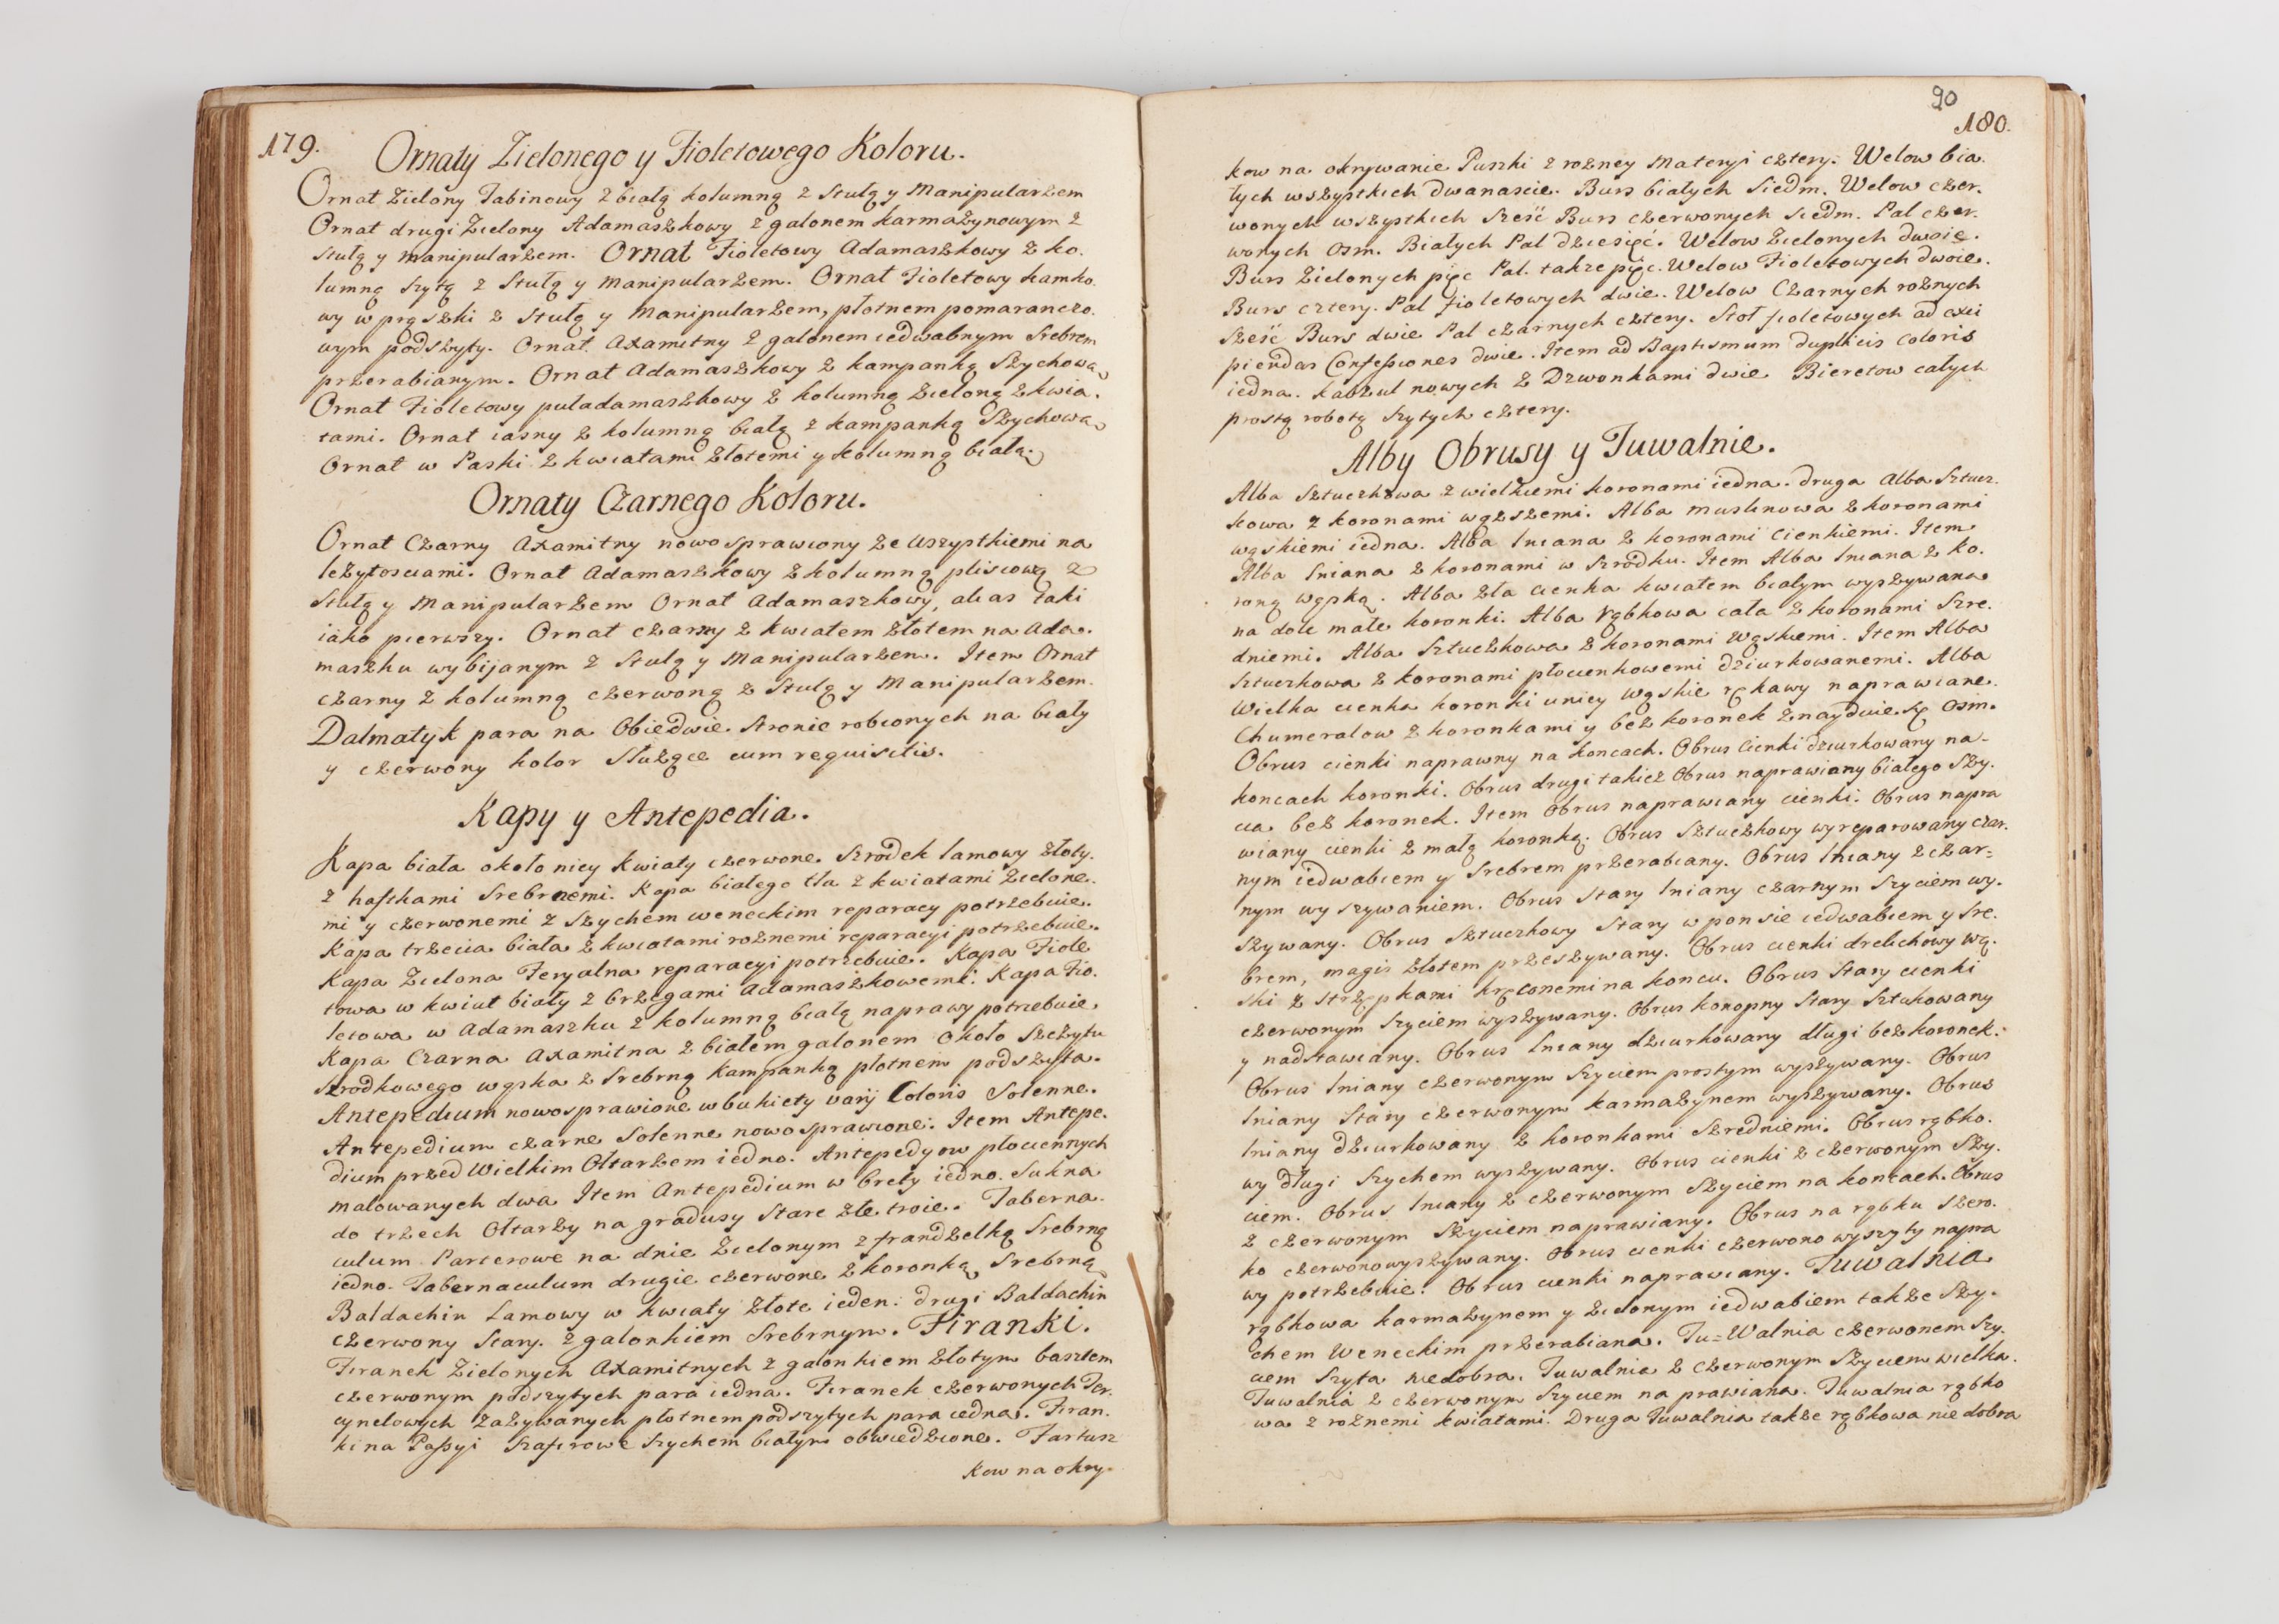 179.
Ornaty Zielonego y Fioletowego Koloru.
Ornat Zielony Tabinowy z białą kolumną z Stułą y Manipularzem
Ornat drugi Zielony Adamaszkowy z galonem karmazynowym z
stułą y manipularzem. Ornat Fioletowy Adamaszkowy z ko.
lumną szytą z Stułą y Manipularzem. Ornat Fioletowy kamko.
wy w prąszki z Stułą y Manipularzem, płotnem pomaranczo.
wym podszyty. Ornat Axamitny z galonem iedwabnym Srebrem
przerabianym. Ornat Adamaszkowy z kampanką Szychową
Ornat Fioletowy puładamaszkowy z kolumną zieloną z kwia.
tami. Ornat iasny z kolumną białą z kampanką Szychową
Ornat w Paski z kwiatami złotemi y kolumną białą.
Ornaty Czarnego Koloru.
Ornat Czarny Axamitny nowo sprawiony ze wszystkiemi na
leżytosciami. Ornat Adamaszkowy z kolumną plisiową z
Stułą y Manipularzem Ornat Adamaszkowy, alias taki
iako pierwszy. Ornat czarny z kwiatem złotem na Ada.
maszku wybijanym z Stułą y Manipularzem. Item Ornat
czarny z kolumną czerwoną z Stułą y Manipularzem.
Dalmatyk para na Obiedwie Stronie robionych na biały
y czerwony kolor Służące cum requisitis.
Kapy y Antepedia.
Kapa biała około niey kwiaty czerwone Szrodek lamowy złoty.
z haftkami Srebrnemi. Kapa białego tła z kwiatami Zielone.
mi y czerwonemi z Szychem weneckim reparacy potrzebuie.
Kapa trzecia biała z kwiatami roznemi reparacyi potrzebuie.
Kapa Zielona Feryalna reparacyi potrzebuie. Kapa Fiole
towa w kwiat biały z brzegami Adamaszkowemi. Kapa Fio.
letowa w Adamaszku z kolumną białą naprawy potrzebuie.
Kapa Czarna Axamitna z białem galonem około Szczytu
Szrodkowego wąska z Srebrną Kampanką płotnem podszyta.
Antepedium nowosprawione w bukiety varij Coloris Solenne.
Antepedium czarne Solenne nowo sprawione. Item Antepe.
dium przed Wielkim Ołtarzem iedno. Antepedyow płociennych
malowanych dwa Item Antepedium w brety iedno. Sukna
do trzech Ołtarzy na gradusy Stare złe troie. Taberna.
culum Parterowe na dnie Zielonym z frandzelką Srebrną
iedno. Tabernaculum drugie czerwone z koronką Srebrną
Baldachin Lamowy w kwiaty złote ieden. drugi Baldachin
czerwony Stary. z galonkiem Srebrnym. Firanki.
Firanek Zielonych Axamitnych z galonkiem złotym basztem
czerwonym podszytych para iedna. Firanek czerwonych Ter.
cynelowych zażywanych płotnem podszytych para iedna. Firan.
ki na Paßyi Szafirowe Szychem białym obwiedzione. Fartusz
kow na okry.
90
180.
kow na okrywanie Puszki z rozney Materyi cztery. Welow bia.
łych wszystkich dwanascie. Burs białych Siedm. Welow czer.
wonych wszystkich sześć Burs czerwonych siedm. Pal czer.
wonych osm. Białych Pal dziesięć. Welow Zielonych dwoie.
Burs Zielonych pięc Pal. takze pięc. Welow Fioletowych dwoie.
Burs cztery. Pal fioletowych dwie. Welow Czarnych roznych
Sześć Burs dwie Pal czarnych cztery. Stoł fioletowych ad exci
piendas Confeßiones dwie. Item ad Baptismum duplicis coloris
iedna. Kabzul nowych z Dzwonkami dwie Bieretow całych
prostą robotą Szytych cztery.
Alby Obrusy y Tuwalnie.
Alba Sztuczkowa z wielkiemi koronami iedna. druga Alba Sztucz.
kowa z koronami węższemi. Alba muslinowa z koronami
wąskiemi iedna. Alba lniana z koronami Cienkiemi. Item
Alba lniana z koronami w Szrodku. Item Alba lniana z ko.
roną wąską. Alba zła cienka kwiatem białym wyszywana
na dole małe koronki. Alba rąbkowa cała z koronami Szre.
dniemi. Alba Sztuczkowa z koronami wąskiemi. Item Alba
Sztuczkowa z koronami płocienkowemi dziurkowanemi. Alba
Wielka cienka koronki u niey wąskie rękawy naprawiane.
Chumerałow z koronkami y bez koronek znayduie sę osm.
Obrus cienki naprawny na koncach. Obrus Cienki dziurkowany na-
koncach koronki. Obrus drugi takiez Obrus naprawiany białego Szy.
cia bez koronek. Item Obrus naprawiany cienki. Obrus napra
wiany cienki z małą koronką. Obrus Sztuczkowy wyreparowany czar.
nym iedwabiem y Srebrem przerabiany. Obrus lniany z czar=
nym wyszywaniem. Obrus Stary lniany czarnym Szyciem wy.
szywany. Obrus Sztuczkowy Stary w ponsie iedwabiem y Sre.
brem, magis złotem przeszywany. Obrus cienki drelichowy wą.
ski z strzępkami kręconemi na koncu. Obrus Stary cienki
czerwonym Szyciem wyszywany. Obrus konopny Stary Sztukowany
y nadstawiany. Obrus lniany dziurkowany długi bez koronek.
Obrus lniany czerwonym Szyciem prostym wyszywany. Obrus
lniany Stary czerwonym karmazynem wyszywany. Obrus
lniany dziurkowany z koronkami Szredniemi. Obrus rąbko.
wy długi Szychem wyszywany. Obrus cienki z czerwonym Szy.
ciem. Obrus lniany z czerwonym Szyciem na koncach. Obrus
z czerwonym Szyciem naprawiany. Obrus na rąbku szero.
ko czerwonowyszywany. Obrus cienki czerwono wyszyty napra
wy potrzebuie. Obrus cienki naprawiany. Tuwalnia
rąbkowa karmazynem y zielonym iedwabiem takze Szy.
chem Weneckim przerabiana. Tu=Walnia czerwonem Szy.
ciem Szyta niedobra. Tuwalnia z czerwonym Szyciem wielka.
Tuwalnia z czerwonym Szyciem naprawiana. Tuwalnia rąbko
wa z roznemi kwiatami. Druga Tuwalnia takze rąbkowa nie dobra